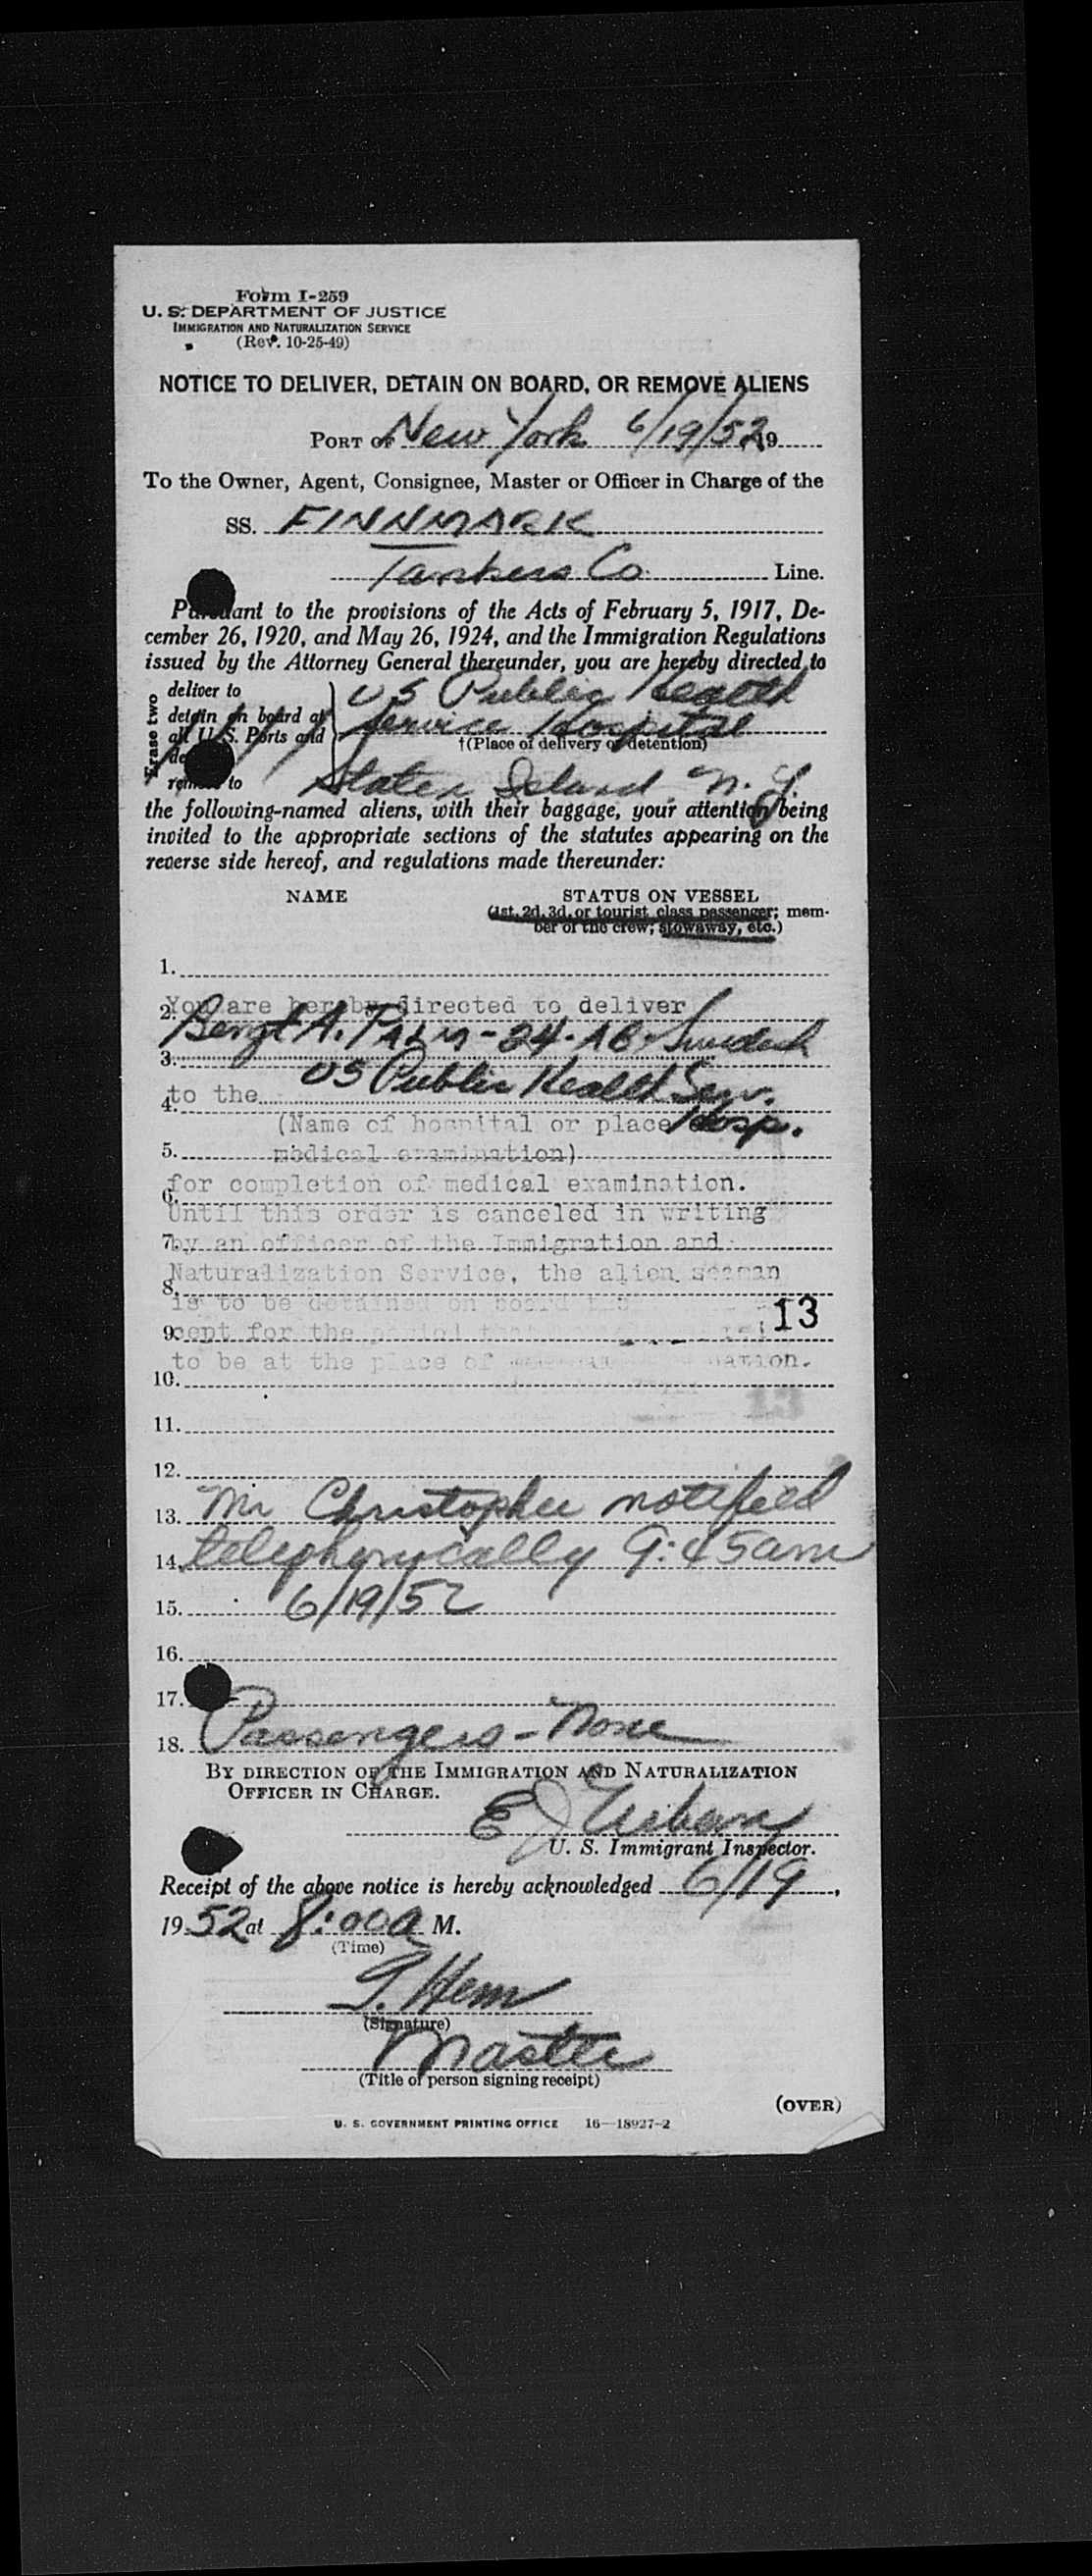 Form I-259
U. S. DEPARTMENT OF JUSTICE
IMMIGRATION AND NATURALIZATION SERVICE
(Rev. 10-25-49)
NOTICE TO DELIVER, DETAIN ON BOARD, OR REMOVE ALIENS
PORT OF New York 6/19/52 19
To the Owner, Agent, Consignee, Master or Officer in Charge of the
SS. FINNMARK
Tankers Co. Line.
Pursuant to the provisions of the Acts of February 5, 1917, De-
cember 26, 1920, and May 26, 1924, and the Immigration Regulations
issued by the Attorney General thereunder, you are hereby directed to
Erase two
deliver to US Public Health
detain on board at Service Hospital
all U. S. Ports and
†(Place of delivery or detention)
remove to Staten Island N. Y.
the following-named aliens, with their baggage, your attention being
invited to the appropriate sections of the statutes appearing on the
reverse side hereof, and regulations made thereunder:
NAME STATUS ON VESSEL
(1st, 2d, 3d, or tourist class passenger; mem-
ber of the crew; stowaway, etc.)
1.
You are hereby directed to deliver
2. Bengt A. PALM - 24 - AB - Swedish
3. US Public Health Serv.
to the
4. Hosp.
(Name of hospital or place
5. medical examination)
for completion of medical examination.
6.
Until this order is canceled in writing
7. by an officer of the Immigration and
Naturalization Service, the alien seaman
8.
is to be detained on board
13
9. cept for the period
to be at the place of
10.
13
11.
12.
13. Mr Christopher notified
14. telephonically 9:45am
15. 6/19/52
16.
17.
18. Passengers - None
BY DIRECTION OF THE IMMIGRATION AND NATURALIZATION
OFFICER IN CHARGE.
E J Urban
U. S. Immigrant Inspector.
Receipt of the above notice is hereby acknowledged 6/19,
1952 at 8:00 a M.
(Time)
Hem
(Signature)
Master
(Title of person signing receipt)
(OVER)
U. S. GOVERNMENT PRINTING OFFICE 16—18927-2